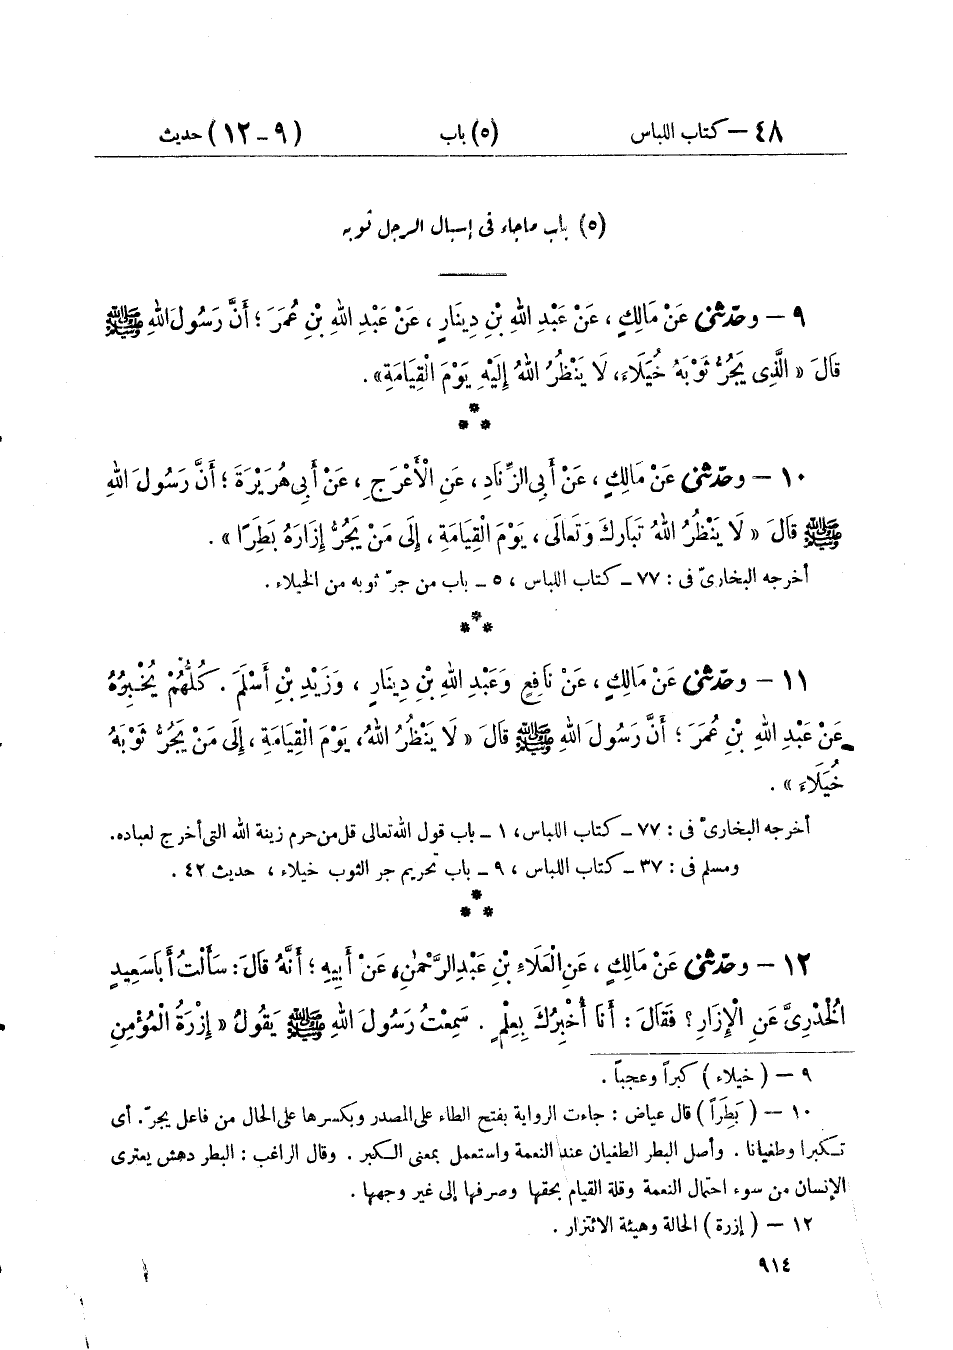 ٤٨ – كتاب اللباس (٥) باب (٩ – ١٢) حديث
(٥) باب ماجاء فى إسبال الرجل ثوبه
٩ – وحدّثنى عَنْ مَالِكٍ ، عَنْ عَبْدِ اللهِ بْنِ دِينَارٍ ، عَنْ عَبْدِ اللهِ بْنِ عُمَرَ ؛ أَنَّ رَسُولَ اللهِ ﷺ
قَالَ « الَّذِى يَجُرُّ ثَوْبَهُ خُيَلَاءَ، لَا يَنْظُرُ اللهُ إِلَيْهِ يَوْمَ الْقِيَامَةِ» .
*
* *
١٠ – وحدّثنى عَنْ مَالِكٍ ، عَنْ أَبِى الزِّنَادِ ، عَنِ الْأَعْرَجِ ، عَنْ أَبِى هُرَيْرَةَ ؛ أَنَّ رَسُولَ اللهِ
ﷺ قَالَ « لَا يَنْظُرُ اللهُ تَبَارَكَ وَتَعَالَى ، يَوْمَ الْقِيَامَةِ ، إِلَى مَنْ يَجُرُّ إِزَارَهُ بَطَرًا » .
أخرجه البخارىّ فى : ٧٧ – كتاب اللباس ، ٥ – باب من جرّ ثوبه من الخيلاء .
*
* *
١١ – وحدّثنى عَنْ مَالِكٍ ، عَنْ نَافِعٍ وَعَبْدِ اللهِ بْنِ دِينَارٍ ، وَزَيْدِ بْنِ أَسْلَمَ . كُلُّهُمْ يُخْبِرُهُ
عَنْ عَبْدِ اللهِ بْنِ عُمَرَ ؛ أَنَّ رَسُولَ اللهِ ﷺ قَالَ « لَا يَنْظُرُ اللهُ، يَوْمَ الْقِيَامَةِ ، إِلَى مَنْ يَجُرُّ ثَوْبَهُ
خُيَلَاءَ » .
أخرجه البخارىّ فى : ٧٧ – كتاب اللباس، ١ – باب قول الله تعالى قل من حرم زينة الله التى أخرج لعباده.
ومسلم فى : ٣٧ – كتاب اللباس ، ٩ – باب تحريم جر الثوب خيلاء ، حديث ٤٢ .
*
* *
١٢ – وحدّثنى عَنْ مَالِكٍ ، عَنِ الْعَلَاءِ بْنِ عَبْدِ الرَّحْمٰنِ، عَنْ أَبِيهِ ؛ أَنَّهُ قَالَ : سَأَلْتُ أَبَا سَعِيدٍ
الْخُدْرِىَّ عَنِ الْإِزَارِ ؟ فَقَالَ : أَنَا أُخْبِرُكَ بِعِلْمٍ . سَمِعْتُ رَسُولَ اللهِ ﷺ يَقُولُ « إِزْرَةُ الْمُؤْمِنِ
٩ – ( خيلاء ) كبراً وعجباً .
١٠ – ( بَطِرَاً ) قال عياض : جاءت الرواية بفتح الطاء على المصدر وبكسرها على الحال من فاعل يجرّ . أى
تكبرا وطغيانا . وأصل البطر الطغيان عند النعمة واستعمل بمعنى الكبر . وقال الراغب : البطر دهش يعترى
الإنسان من سوء احتمال النعمة وقلة القيام بحقها وصرفها إلى غير وجهها .
١٢ – ( إزرة ) الحالة وهيئة الائتزار .
٩١٤